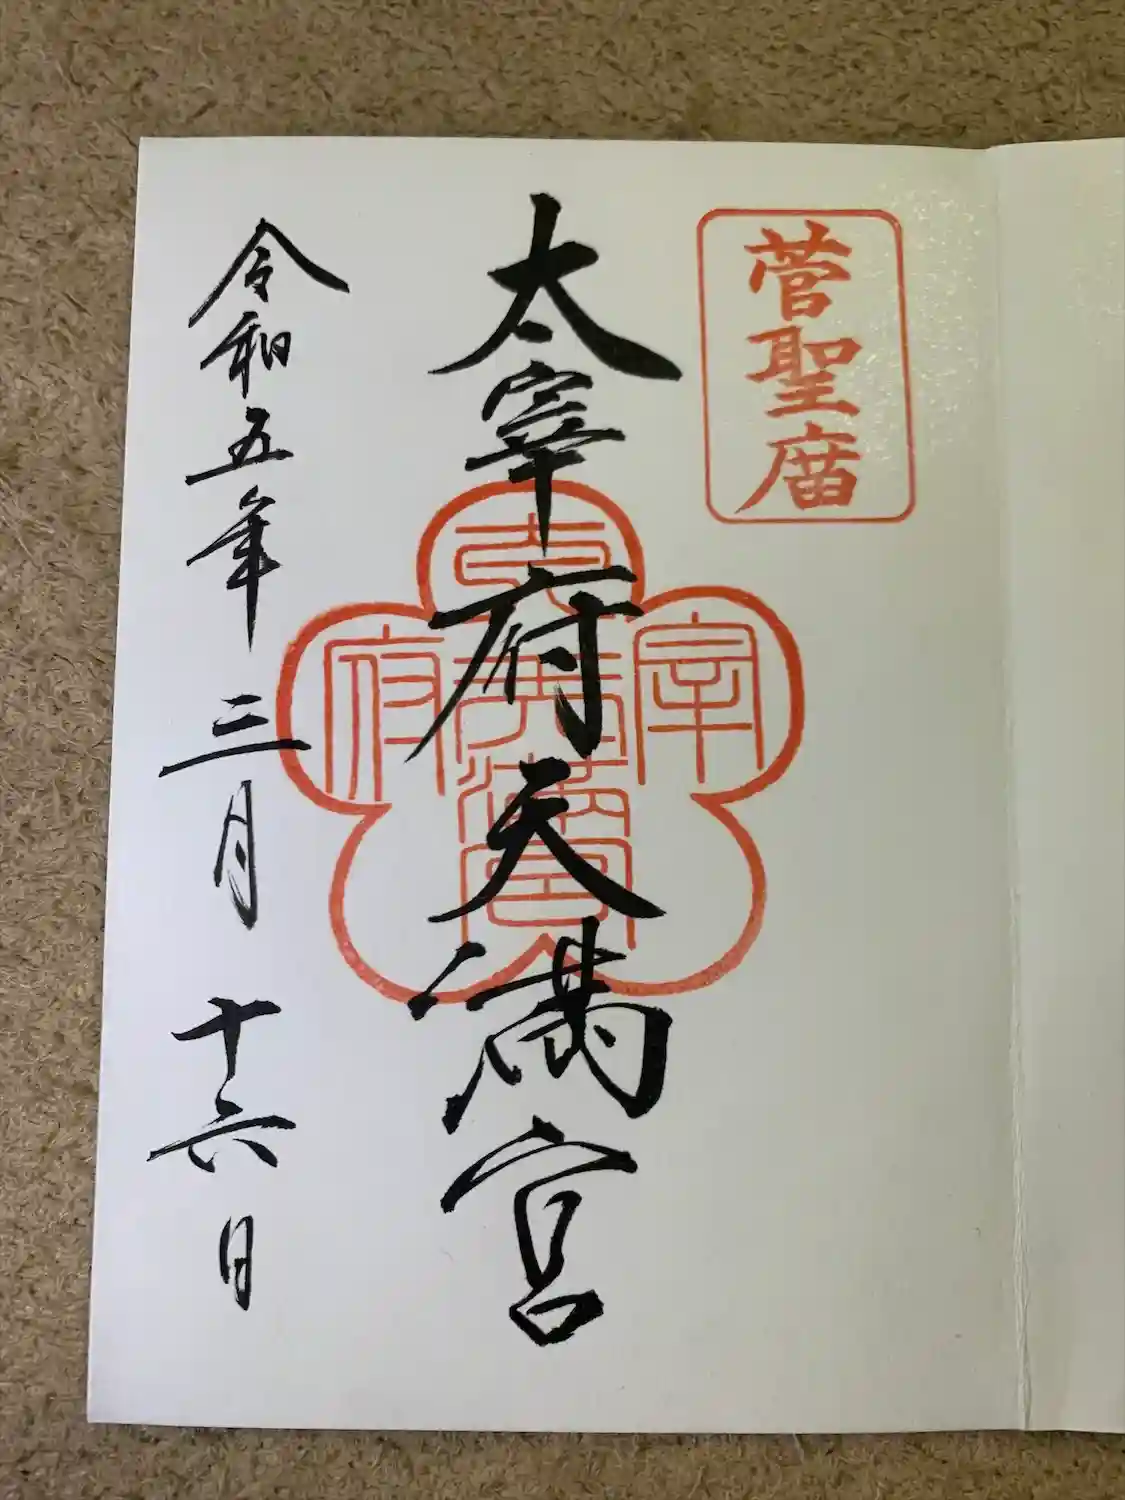 菅聖庿
太宰府天満宮
太宰府天満宮
令和五年三月十六日